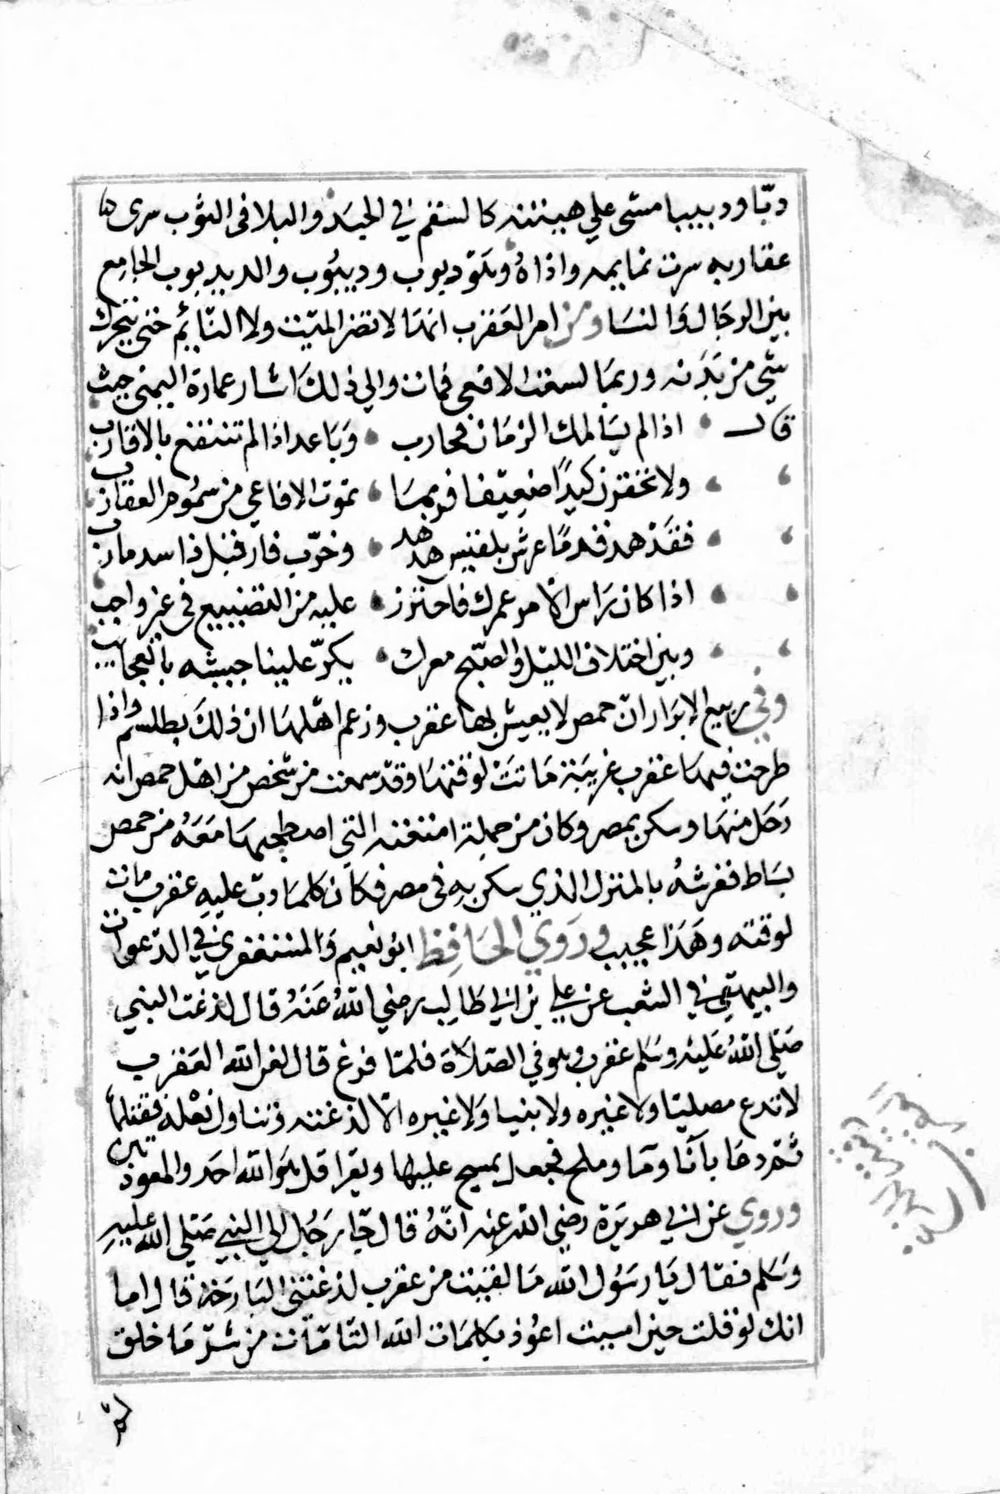 دبّا ودبيبا مشي علي هينته كالسقم في الجسد والبلا في الثوب سري هنا
عقاربه سرت نمايمه واذاهُ وهو ديوب وديبوب والديبوب الجامع
بين الرجال والنسا ومن امر العقرب انها لا تضر الميّت ولا النّايُم حتى يتحرك
شي من بدنه وربما لسعت الافعى فماتت والي ذلك اشار عمارة اليمنى حيث
قال اذا لم يسالمك الزمان فحارب وباعد اذا لم تنتفع بالاقارب
ولا تحتقرن كيدًا ضعيفا فربما تموت الافاعي من سموم العقارب
فقد هد قدمًا عرش بلقيس هدهد وخرّب فار قبل ذا سد مارب
اذا كان راس الأمر عمرك فاحترز عليه من التضييع في غير واجب
وبين اختلاف الليل والصّبح معرك يكرّ علينا جيشه بالعجايب
وفي ربيع الابرار ان حمص لا يعيش بها عقرب وزعم اهلها ان ذلك بطلسم واذا
طرحت فيها عقرب غريبة ماتت لوقتها وقد سمعت من شخص من اهل حمص انه
رحل منها وسكن بمصر وكان من جملة امتعته التي اصطحبها معه من حمص
بساط ففرشه بالمنزل الذي سكن به في مصر فكان كلما دبّ عليه عقرب مات
لوقته وهذا عجيب وروي الحافظ ابو نعيم والمستغفري في الدّعوات
والبيهقي في الشعب عن علي بن ابي طالب رضي الله عنه قال لدغت النبي
صلي الله عليه وسلم عقرب وهو في الصلاة فلما فرغ قال لعن الله العقرب
لا تدع مصليا ولا غيره ولا نبيا ولا غيره الّا لدغته وتناول نعله فقتلها
ثم دعا بآنا وما وملح فجعل يمسح عليها ويقرا قل هو الله احد والمعوذتين
وروي عن ابي هريرة رضي الله عنه انهُ قال جا رجل الي النبي صلي الله عليه
وسلم فقال يا رسول الله ما لقيت من عقرب لدغتني البارحة قال اما
انك لو قلت حين امسيت اعوذ بكلمات الله التّامّات من شرّ ما خلق